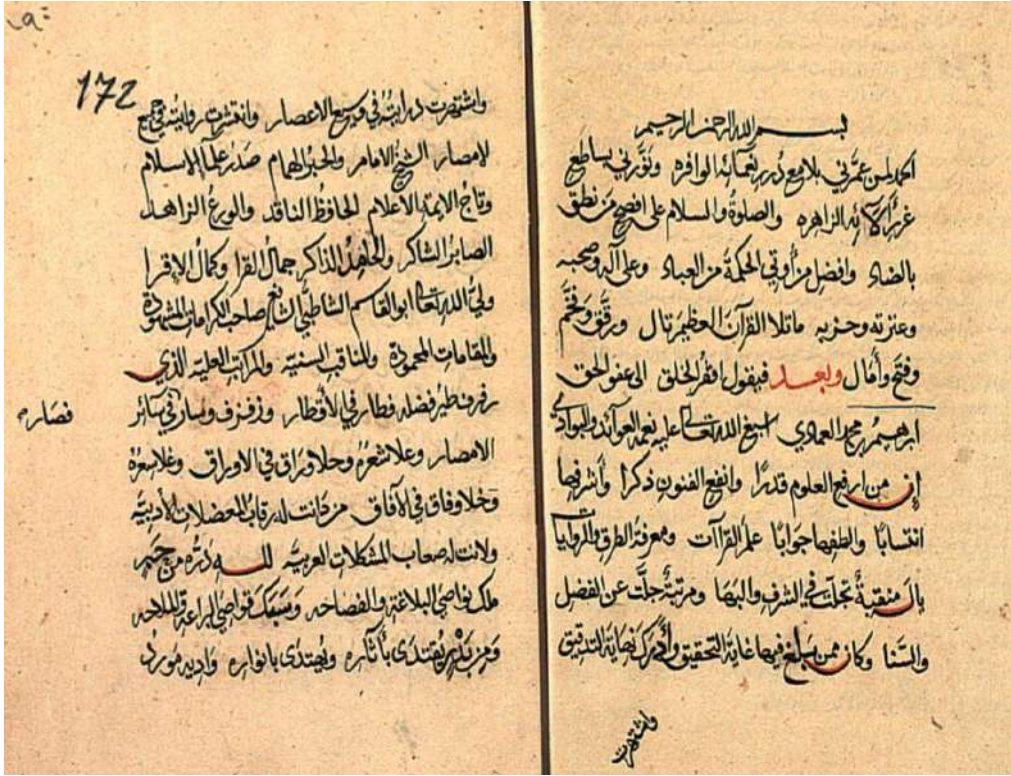 بسم الله الرحمن الرحيم
الحمد لمن عمَّرني بلامع درر نعمائه الوافره ونوَّرني بساطع
غرر آلائه الزاهره والصلوة والسلام على افصح من نطق
بالضاد وافضل من أوتي الحكمة من العباد وعلى آله وصحبه
وعترته وحزبه ما تلا القرآن العظيم تال ورقَّق وفخَّم
وفتح وأمال وبعد فيقول افقر الخلق الى عفو الحق
ابرهيم بن محمد العمادي اسبغ الله تعالى عليه نعمه العوائد والبوادي
إن من ارفع العلوم قدرًا وانفع الفنون ذكرا وأشرفها
انتسابًا والطفها جوابًا علم القراآت ومعرفة الطرق والروايا
يال منقبة تجلت في الشرف والبها ومرتبة جلَّت عن الفضل
والسَّنا وكان ممن بلغ فيها غاية التحقيق وأدرك نهاية التدقيق
واشتهرت
172
واشتهرت درايته في وسيع الاعصار وانتشرت روايته في جميع
لامصار الشيخ الامام والحبر الهمام صدر علماء الاسلام
وتاج الايمة الاعلام الحافظ الناقد والورع الزاهد
الصابر الشاكر والجاهد الذاكر جمال القرا وكمال الاقرا
وليُّ الله تعالى ابو القاسم الشاطبي الشافعي صاحب الكرامات المشهودة
والمقامات المحمودة والمناقب السنيه والمراتب العليه الذي
رفرف طير فضله فطار في الأقطار وزفزف وسار في سائر
فصار
الامصار وعلا شعره وحلا وراق في الاوراق وغلا سعره
وخلا وفاق في الآفاق من دانت له رقاب المعضلات الأدبيَّه
ولانت له صعاب المشكلات العربيه لله درُّه من حبر
ملك نواصي البلاغة والفصاحه وسبك قواصي البراعة والملاحه
ومن بدر يُقتدى بآثاره ويُهتدى بانواره واديه مورد